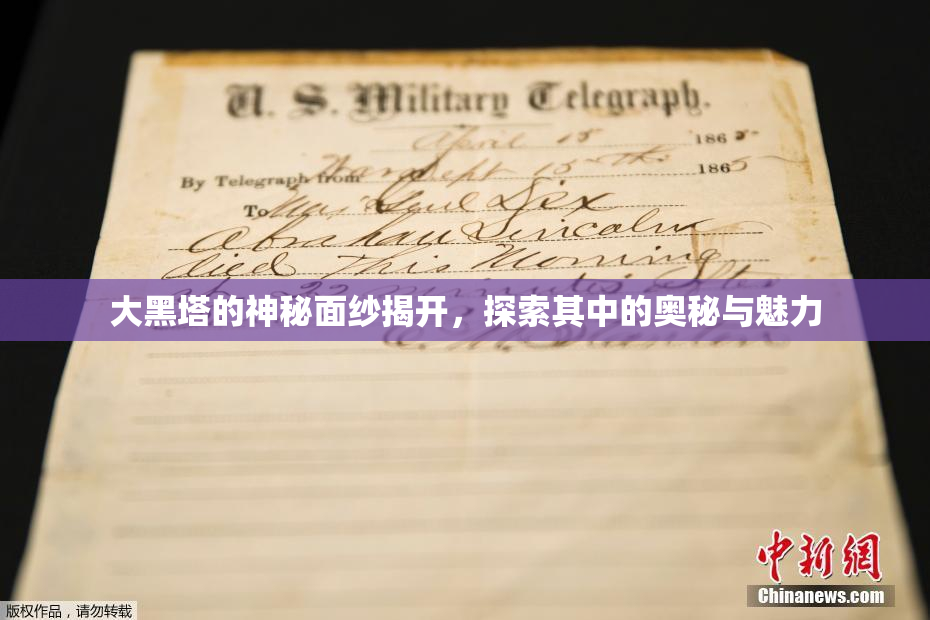 U. S. Military Telegraph.
April 15 1865
By Telegraph from War Dept 15th 1865
To Maj Genl Dix
Abraham Lincoln
died This Morning
22 minutes after
大黑塔的神秘面纱揭开，探索其中的奥秘与魅力
E. M. Stanton
中新網
Chinanews.com
版权作品，请勿转载